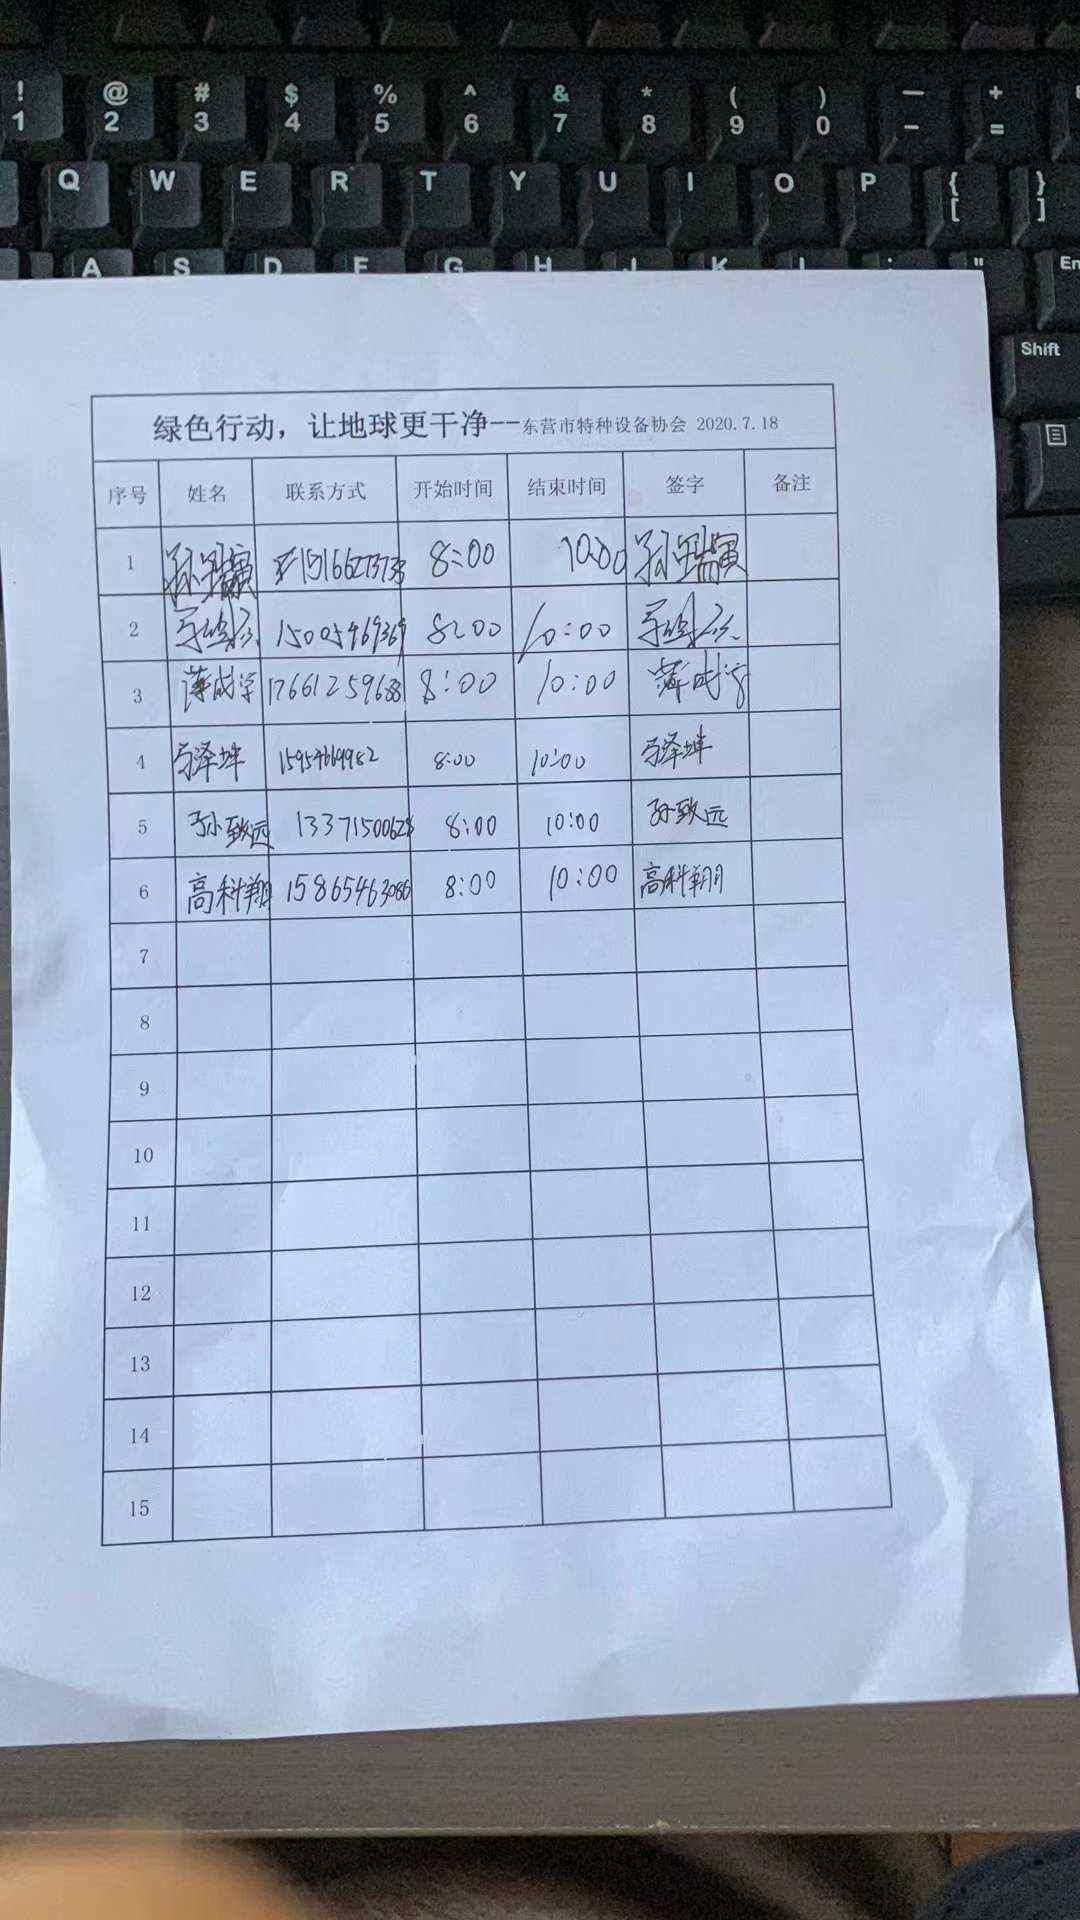 ! @ # $ % ^ & * ( ) — +
1 2 3 4 5 6 7 8 9 0 - =
Q W E R T Y U I O P { }
[ ]
A S D F G H J K L : " En
Shift
绿色行动，让地球更干净--东营市特种设备协会 2020.7.18
序号 姓名 联系方式 开始时间 结束时间 签字 备注
1 孙瑞寅 8:00 10:00 孙瑞寅
2 15005469369 8:00 10:00
3 薄成宇 17661259688 8:00 10:00 薄成宇
4 马泽坤 15954669982 8:00 10:00 马泽坤
5 孙致远 13371500628 8:00 10:00 孙致远
6 高科翔 15865463086 8:00 10:00 高科翔
7
8
9
10
11
12
13
14
15